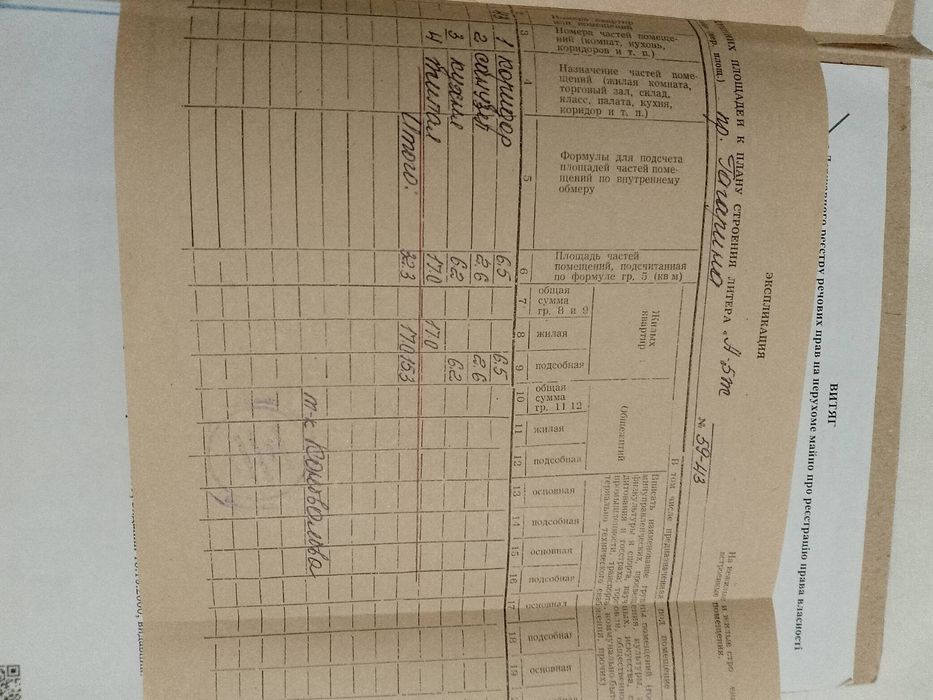 ЭКСПЛИКАЦИЯ
ПЛОЩАДЕЙ К ПЛАНУ СТРОЕНИЯ ЛИТЕРА „А-5т
пр. Гагарина
№ 59-43
В том числе предназначена под помещение
Номера частей помеще-
ний (комнат, кухонь,
коридоров и т. п.)
Назначение частей поме-
щений (жилая комната,
торговый зал, склад,
класс, палата, кухня,
коридор и т. п.)
Формулы для подсчета
площадей частей поме-
щений по внутреннему
обмеру
Площадь частей
помещений, подсчитанная
по формуле гр. 5 (кв м)
Жилых
квартир
общая
сумма
гр. 8 и 9
жилая
подсобная
Общежитий
общая
сумма
гр. 11 12
жилая
подсобная
основная
подсобная
основная
подсобная
основная
подсобная
основная
3 4 5 6 7 8 9 10 11 12 13 14 15 16 17 18 19
1 коридор 6.5 6.5
2 санузел 2.6 2.6
3 кухня 6.2 6.2
4 жилая 17.0 17.0
Итого: 32.3 17.0 15.3
ВИТЯГ
реєстру речових прав на нерухоме майно про реєстрацію права власності